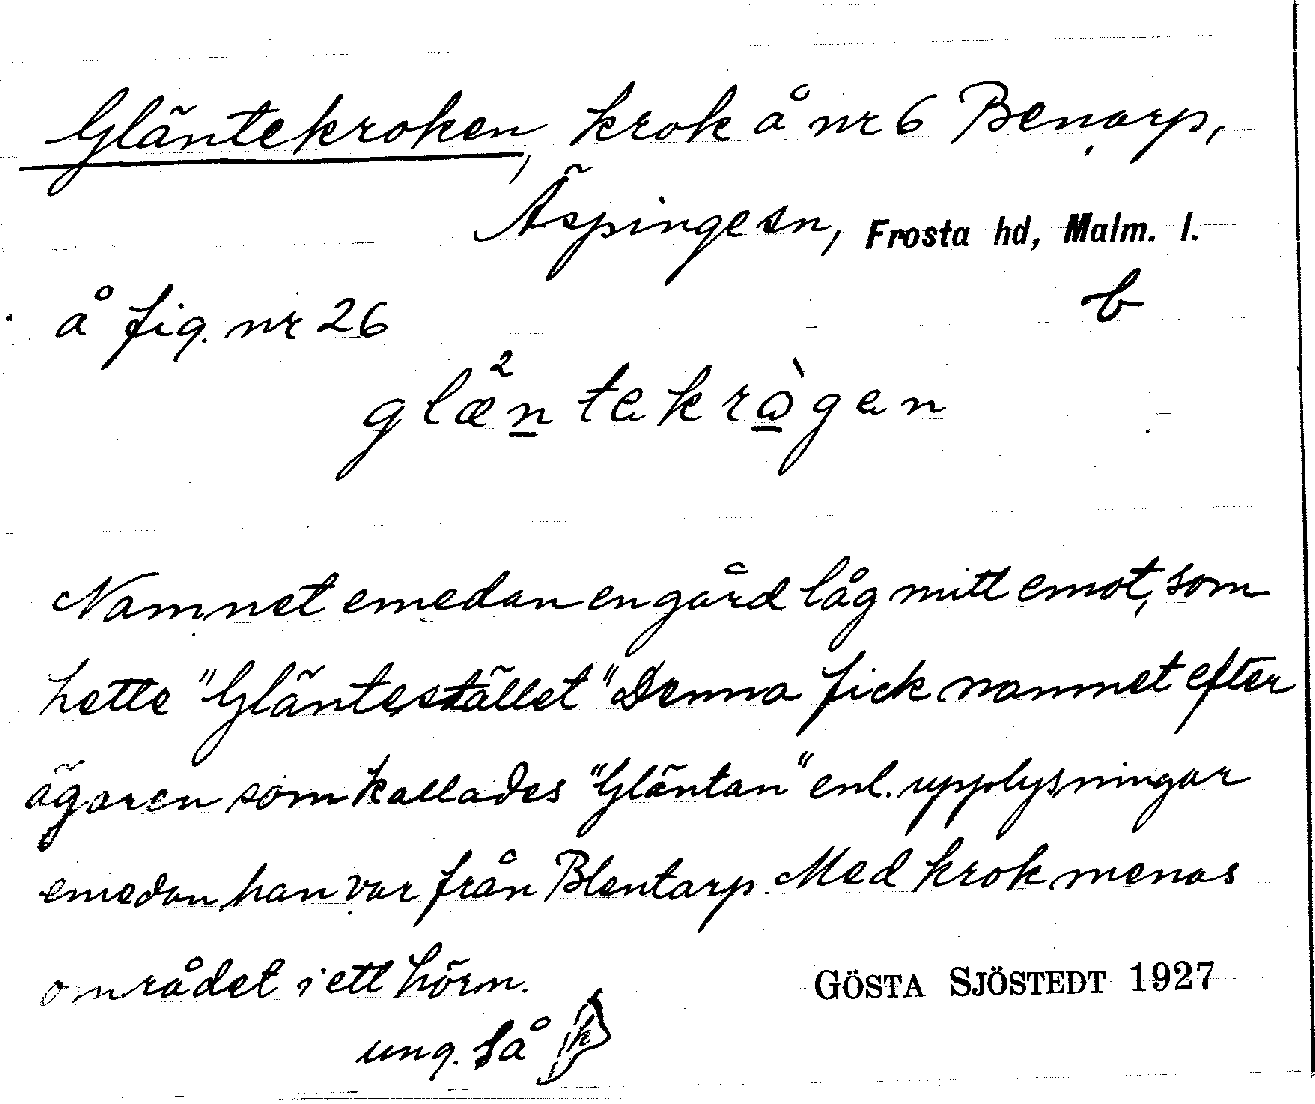 Gläntekroken, krok å nr 6 Benarp,
Äspinge sn, Frosta hd, Malm. l.
å fig. nr 26 b
glæntekrågen
Namnet emedan en gård låg mitt emot, som
hette "Gläntestället" Denna fick namnet efter
ägaren som kallades "Gläntan" enl. upplysningar
emedan han var från Blentarp. Med krok menas
området i ett hörn. GÖSTA SJÖSTEDT 1927
ung. så k